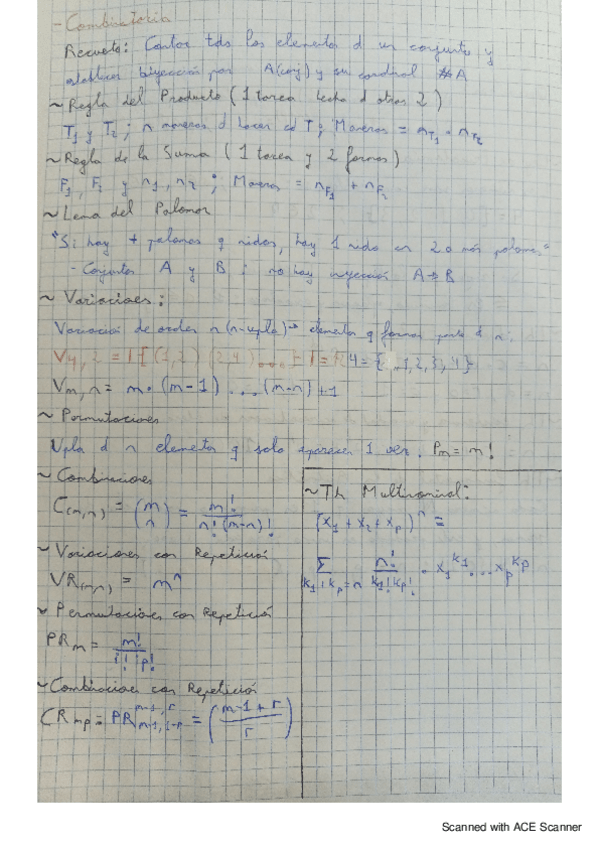 - Combinatoria
Recueto: Contar tds los elementos d un conjunto y
establecer biyección por A(conj) y su cardinal #A
~ Regla del Producto (1 tarea hecha d otras 2)
T1 y T2 ; n maneras d hacer cd T ; Maneras = nT1 · nT2
~ Regla de la Suma (1 tarea y 2 formas)
F1, F2 y n1, n2 ; Maneras = nF1 + nF2
~ Lema del Palomar
"Si hay + palomas q nidos, hay 1 nido en 2 o más palomas."
- Conjuntos A y B ; no hay inyección A→B
~ Variaciones:
Variación de orden n (n-upla) → elementos q forman parte d n.
V4,2 = | {(1,2) (2,4) ...} 4 = { 1,2,3,4}
Vm,n = m · (m-1) ... (m-n)+1
~ Permutaciones
Upla d n elementos q solo aparecen 1 vez. Pm = m!
~ Combinaciones
C(m,n) = (m n) = m! / n! (m-n)!
~ Variaciones con Repetición
VR(m,n) = m^n
~ Permutaciones con Repetición
PRm = m! / i! ip!
~ Combinaciones con Repetición
CRmp = PR m-1, r = (m-1+r / r)
~ Th Multinomial:
(x1 + x2 + xp)^n =
Σ k1+kp=n n! / k1! kp! · x1^k1 ... xp^kp
Scanned with ACE Scanner